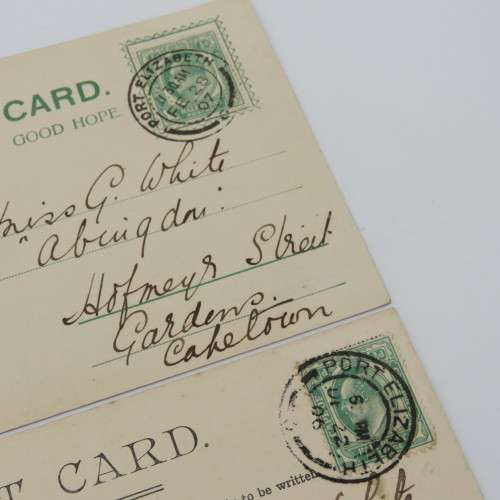 CARD.
GOOD HOPE.
PORT ELIZABETH
FE 23
07
Miss G. White
"Abingdon"
Hofmeyr Street
Gardens.
Capetown
PORT ELIZABETH
06
T CARD.
to be written